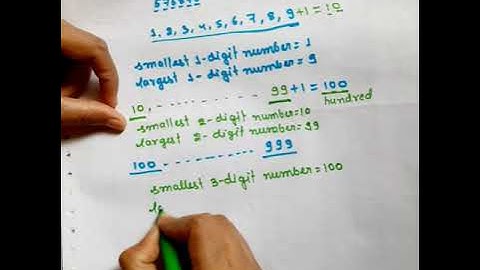 1, 2, 3, 4, 5, 6, 7, 8, 9+1=10
smallest 1-digit number=1
largest 1-digit number=9
10, - - - - - - - - - 99+1=100
hundred
smallest 2-digit number=10
largest 2-digit number=99
100 - - - - - - - - - - - - 999
smallest 3-digit number=100